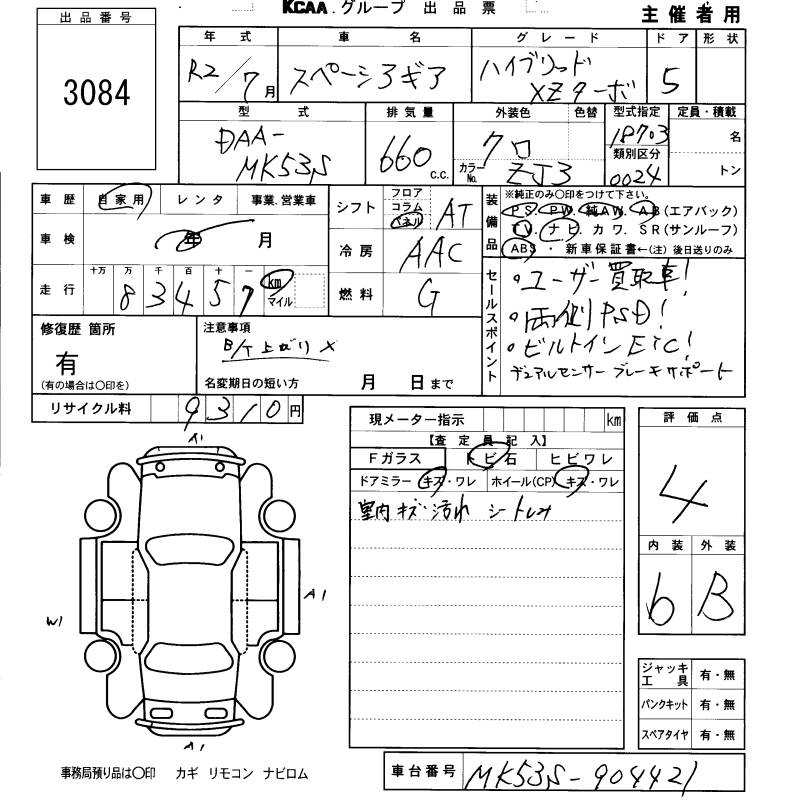 KCAA.グループ 出品票
主催者用
出品番号
3084
年式 車名 グレード ドア 形状
R2/7月 スペーシアギア ハイブリッド XZターボ 5
型式 排気量 外装色 色替 型式指定 定員・積載
DAA-MK53S 660c.c. クロ カラーNo. ZJ3 18703 名
類別区分 0024 トン
車歴 自家用 レンタ 事業.営業車
車検 年 月
走行 十万 万 千 百 十 一 km マイル
83457
シフト フロア コラム パネル AT
冷房 AAC
燃料 G
装備品 ※純正のみ○印をつけて下さい。
PS. PW. 純AW. AB(エアバック)
TV. ナビ. カワ. SR(サンルーフ)
ABS ・ 新車保証書←(注) 後日送りのみ
セールスポイント
・ユーザー買取車!
・両側PSD!
・ビルトインETC!
デュアルセンサーブレーキサポート
修復歴 箇所
有
(有の場合は○印を)
注意事項
B/T上がり×
名変期日の短い方 月 日まで
リサイクル料 9310円
現メーター指示 km
【査定員記入】
Fガラス トビ石 ヒビワレ
ドアミラー キズ・ワレ ホイール(CP) キズ・ワレ
室内キズ・汚れ シートレス
評価点
4
内装 外装
6 B
A1
W1
A1
A1
ジャッキ工具 有・無
パンクキット 有・無
スペアタイヤ 有・無
事務局預り品は○印 カギ リモコン ナビロム
車台番号 MK53S-904421